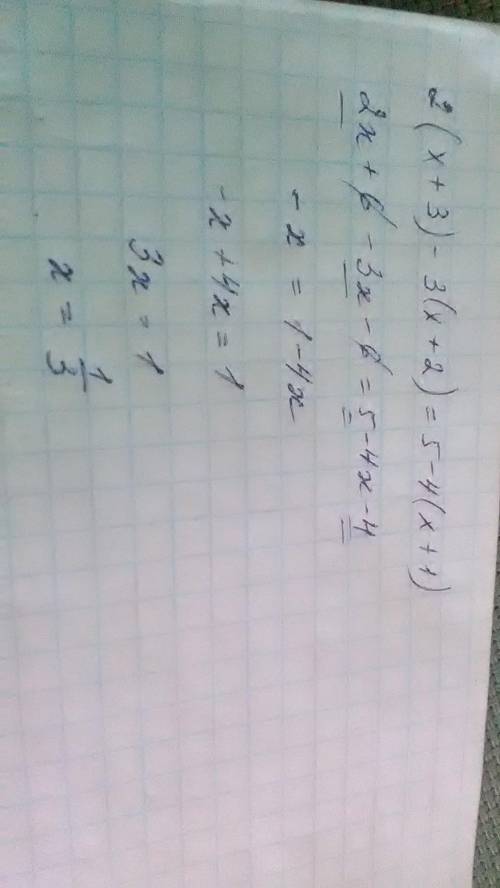 2(x+3)-3(x+2)=5-4(x+1)
2x+6-3x-6=5-4x-4
-x=1-4x
-x+4x=1
3x=1
x=1/3